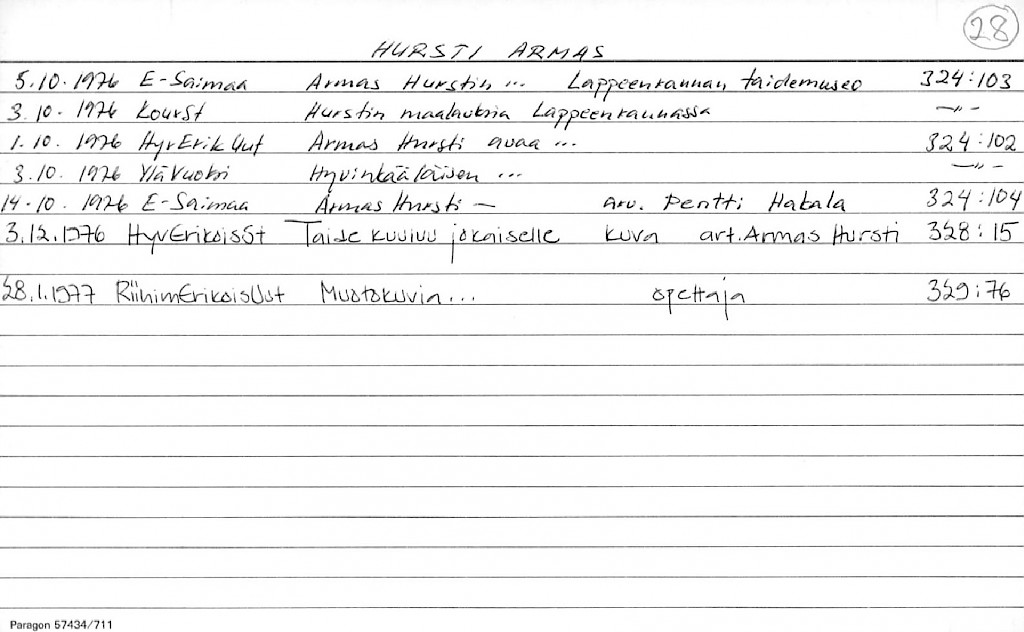 28
HURSTI ARMAS
5.10.1976 E-Saimaa Armas Hurstin ... Lappeenrannan taidemuseo 324:103
3.10.1976 KouvSt Hurstin maalauksia Lappeenrannassa —"—
1.10.1976 HyvErikUut Armas Hursti avaa ... 324:102
3.10.1976 YläVuoksi Hyvinkääläisen ... —"—
14.10.1976 E-Saimaa Armas Hursti — arv. Pentti Hakala 324:104
3.12.1976 HyvErikoisSt Taide kuuluu jokaiselle kuva art. Armas Hursti 328:15
28.1.1977 RiihimErikoisUut Muotokuvia ... opettaja 329:76
Paragon 57434/711